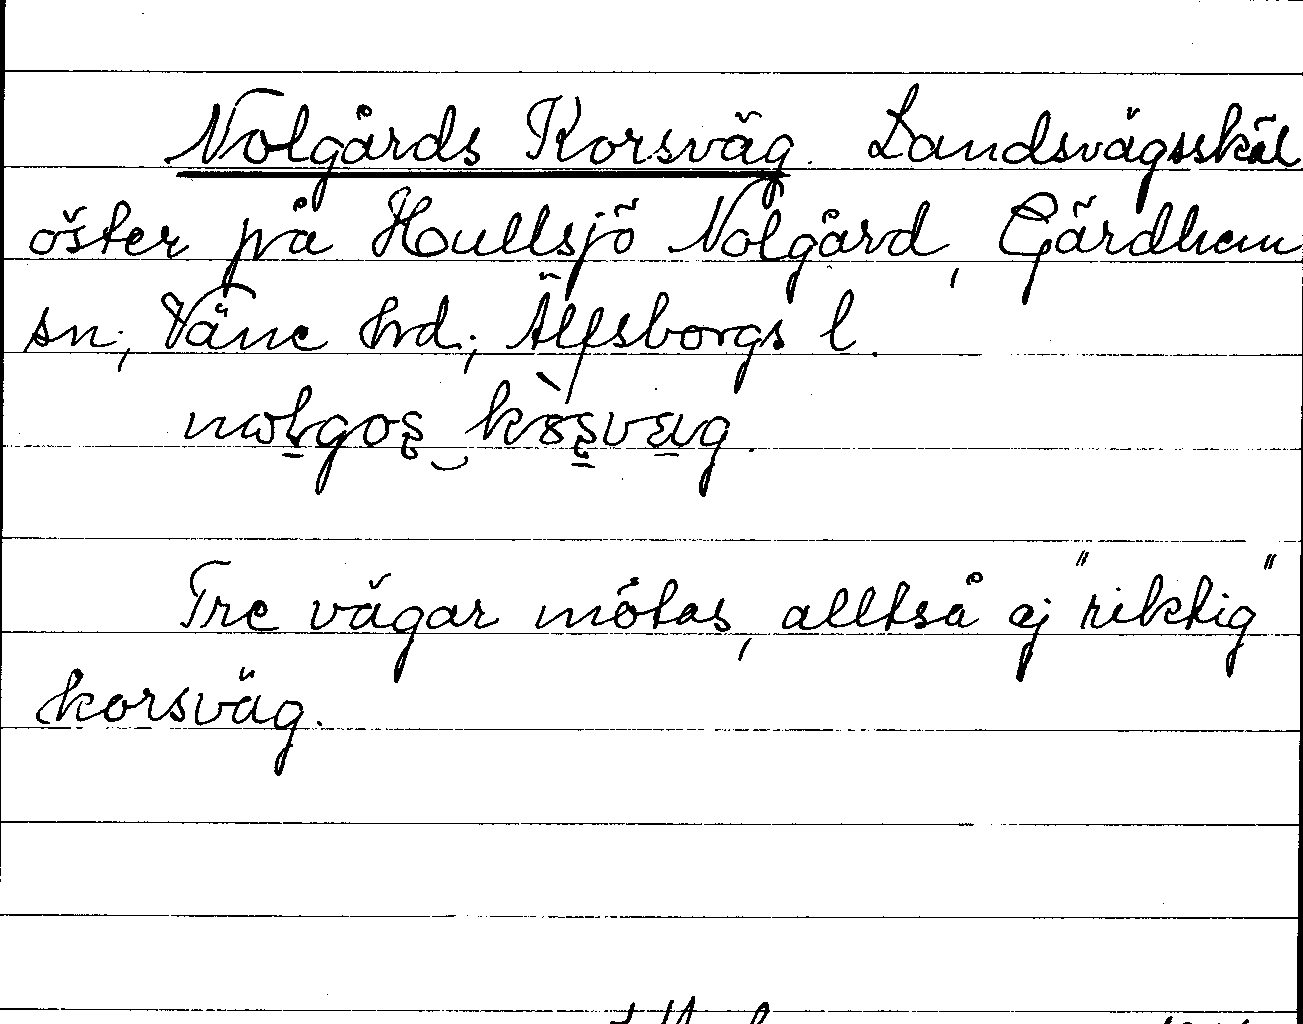 Nolgårds Korsväg. Landsvägsskäl
öster på Hullsjö Nolgård, Gärdhem
sn; Väne hrd; Älfsborgs l.
Tre vägar mötas, alltså ej "riktig"
korsväg.